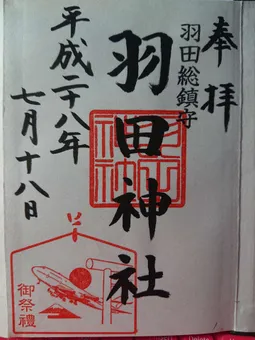 奉拝
羽田総鎮守
羽田神社
平成二十八年
七月十八日
御祭禮